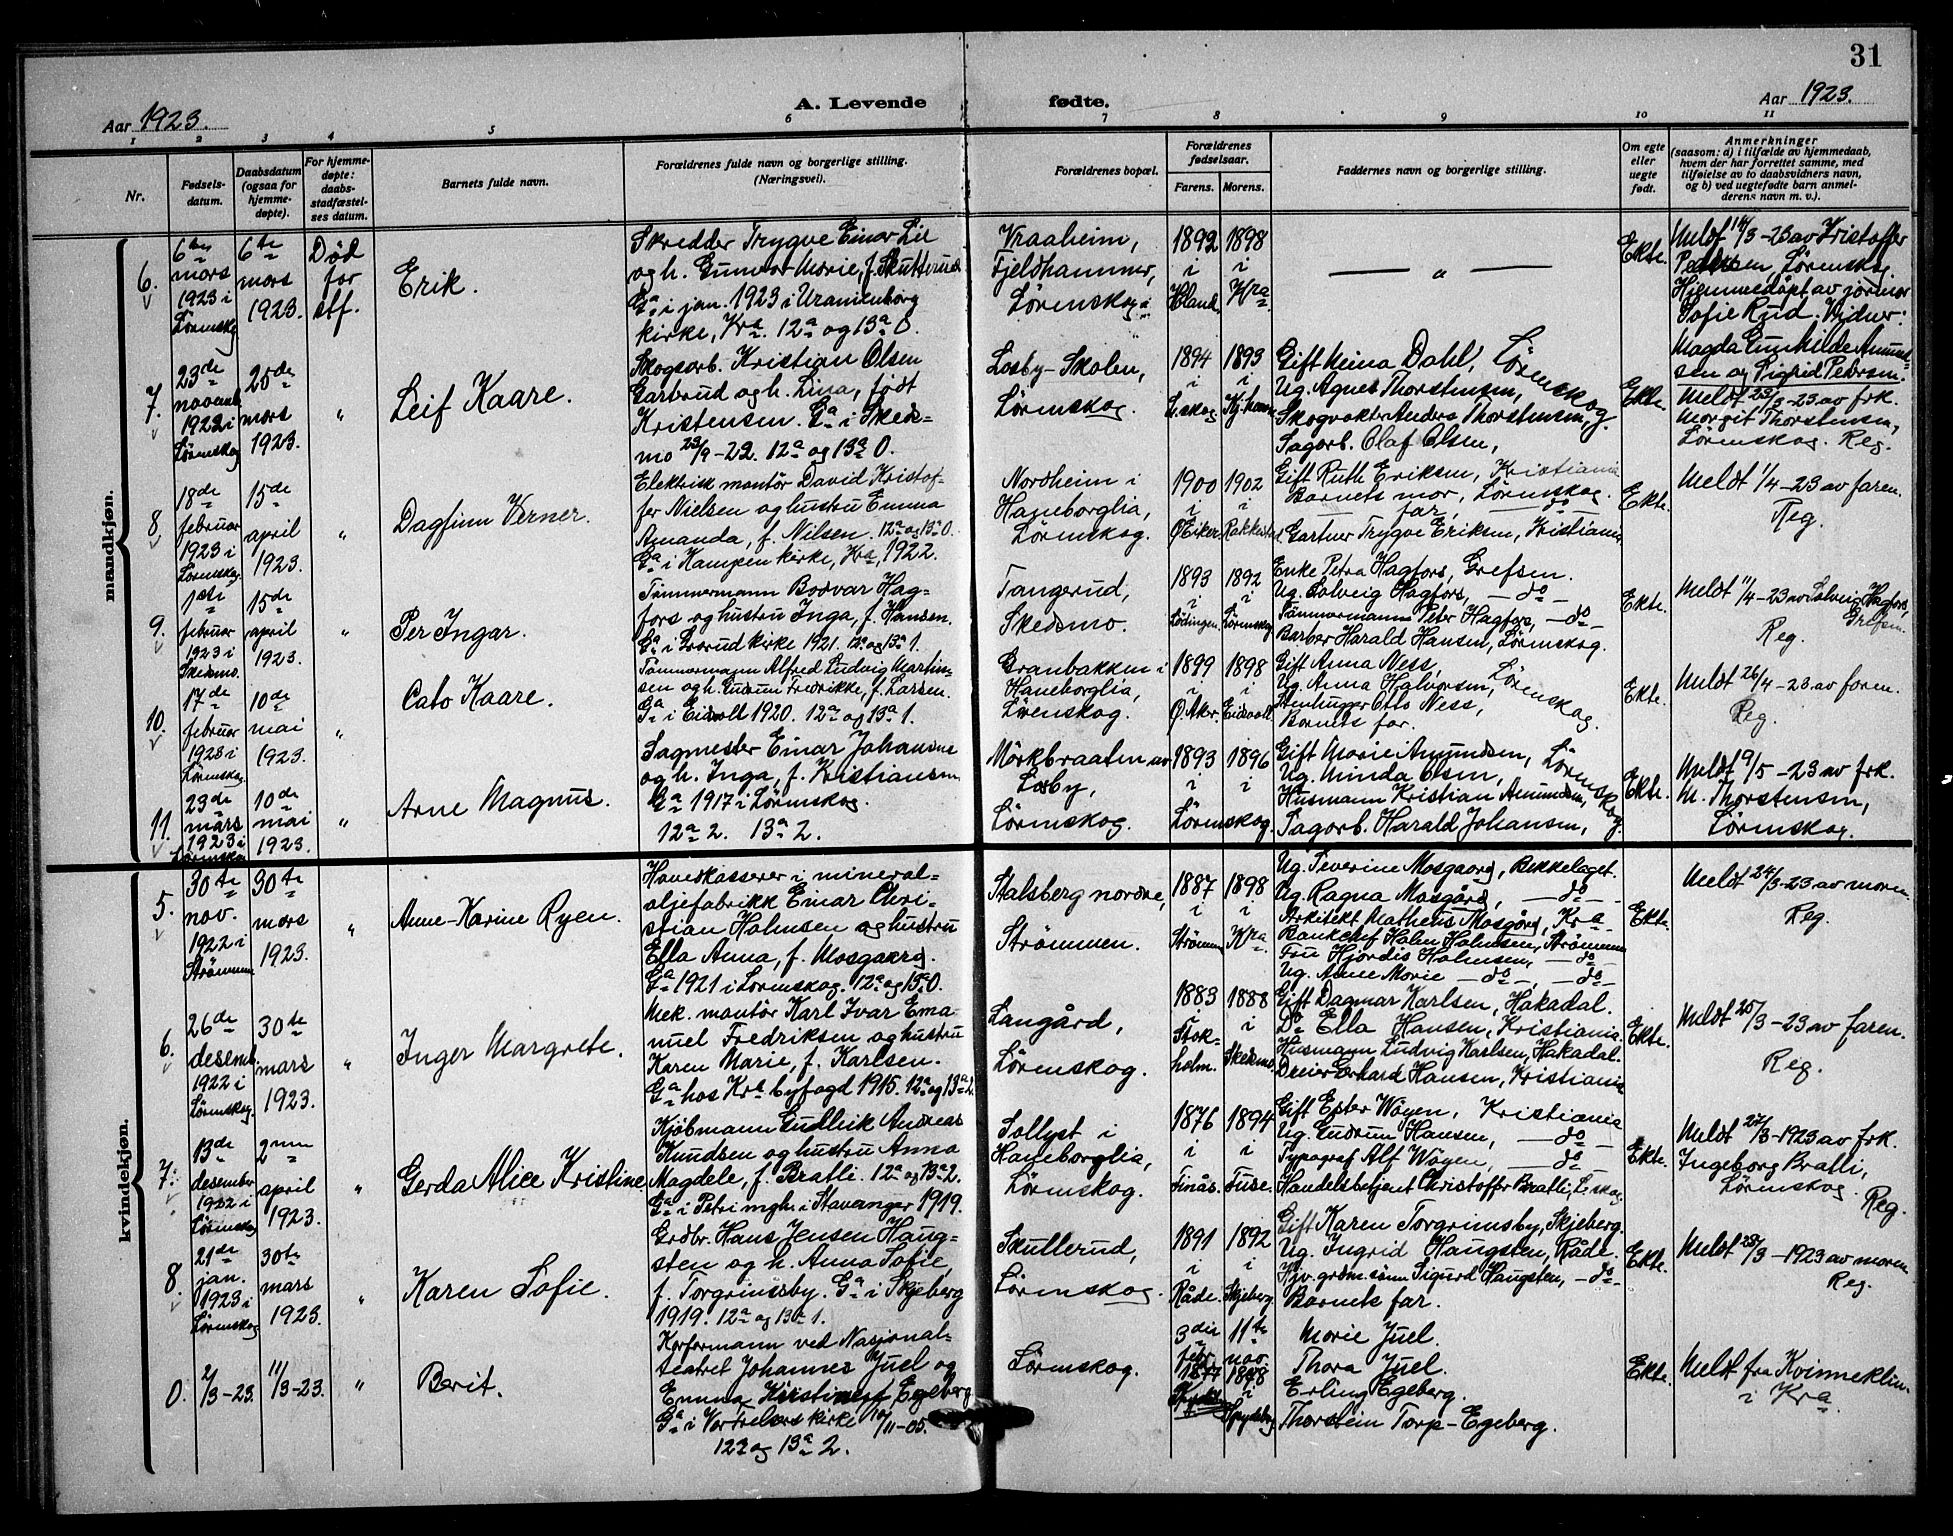 31
Aar 1923.
A. Levende fødte.
Aar 1923.
1 2 3 4 5 6 7 8 9 10 11
Nr.
Fødsels-
datum.
Daabsdatum
(ogsaa for
hjemme-
døpte).
For hjemme-
døpte:
daabs-
stadfæstel-
ses datum.
Barnets fulde navn.
Forældrenes fulde navn og borgerlige stilling.
(Næringsvei).
Forældrenes bopæl.
Forældrenes
fødselsaar.
Farens. Morens.
Faddernes navn og borgerlige stilling.
Om egte
eller
uegte
født.
Anmerkninger
(saasom: a) i tilfælde av hjemmedaab,
hvem der har forrettet samme, med
tilføielse av to daabsvidners navn,
og b) ved uegtefødte barn anmel-
derens navn m. v.).
mandkjøn.
6.
6te
mars
1923 i
Lørenskog
6te
mars
1923.
Død
før
stf.
Erik.
Skredder Trygve Einar Lie
og h. Gunvor Marie, f. Skutterud
Ga i jan. 1923 i Uranienborg
kirke, Kra. 12a og 13a 0.
Vraaheim,
Fjeldhammer,
Lørenskog
1892
i
1898
i
Kra
— „ —
Ekte.
Meldt 14/3-23 av Kristoffer
Pedersen, Lørenskog.
Hjemmedøpt av jormor
Sofie Rud. Vidner:
Magda Gunhilde Amund-
sen og Sigrid Pedersen.
7.
23de
novemb.
1922 i
Lørenskog
25de
mars
1923.
„
Leif Kaare.
Skogsarb. Kristian Olsen
Garbrud og h. Lina, født
Kristensen. Ga i Skeds-
mo 23/9-22. 12a og 13a 0.
Losby-Skolen,
Lørenskog.
1894
i
L.skog
1893
i
Gift Meina Dahl, Lørenskog
Ug. Agnes Thorstensen,
Skogvokter Anders Thorstensen,
Sagarb. Olaf Olsen,
Ekte.
Meldt 23/3-23 av frk.
Margit Thorstensen,
Lørenskog. Reg.
8.
18de
februar
1923 i
Lørenskog.
15de
april
1923.
„
Dagfinn Verner.
Elektrisk montør David Kristof-
fer Nielsen og hustru Emma
Amanda, f. Nilsen. 12a og 13a 0.
Ga i Kampen kirke, Kra, 1922.
Nordheim i
Haneborglia,
Lørenskog.
1900
i
Ø Eiker
1902
i
Rakkestad
Gift Ruth Eriksen, Kristiania
Barnets mor, Lørenskog.
— far, — do —
Gartner Trygve Eriksen, Kristiania
Ekte.
Meldt 1/4-23 av faren.
Reg.
9.
1ste
februar
1923 i
Skedsmo.
15de
april
1923.
„
Per Ingar.
Tømmermann Bodvar Hag-
fors og hustru Inga, f. Hansen.
Ga i kirke 1921. 12a og 13a 1.
Tangerud,
Skedsmo.
1893
i
Lødingen.
1892
i
Lørenskog
Enke Petra Hagfors, Grefsen.
Ug. Solveig Hagfors, — do —
Tømmermann Peter Hagfors, — do —
Barber Harald Hansen, Lørenskog.
Ekte.
Meldt 11/4-23 av Solveig Hagfors,
Grefsen.
Reg.
10.
17de
februar
1923 i
Lørenskog
10de
mai
1923.
„
Cato Kaare.
Tømmermann Alfred Ludvig Martin-
sen og h. Gudrun Fredrikke, f. Larsen.
Ga i Eidsvoll 1920. 12a og 13a 1.
Granbakken i
Haneborglia,
Lørenskog.
1899
i
Ø. Aker
1898
i
Eidsvoll
Gift Anna Ness, Lørenskog.
Ug. Anna Halvorsen,
Stenhugger Otto Ness,
Barnets far.
Ekte.
Meldt 26/4-23 av faren.
Reg.
11.
23de
mars
1923 i
Lørenskog
10de
mai
1923.
„
Arne Magnus.
Sagmester Einar Johansen
og h. Inga, f. Kristiansen.
Ga 1917 i Lørenskog.
12a 2. 13a 2.
Mørkbraaten av
Losby,
Lørenskog.
1893
i
1896
i
Lørenskog.
Gift Marie Amundsen, Lørenskog.
Ug. Minda Olsen,
Husmann Kristian Amundsen,
Sagarb. Harald Johansen,
Ekte.
Meldt 9/5-23 av frk.
M. Thorstensen,
Lørenskog.
kvindekjøn.
5.
30te
nov.
1922 i
Strømmen
30te
mars
1923.
„
Anne-Karine Ryen.
Hovedkasserer i mineral-
oljefabrikk Einar Chri-
stian Holmsen og hustru
Ella Anna, f. Mosgaard.
Ga 1921 i Lørenskog. 12a og 13a 0.
Stalsberg nordre,
Strømmen.
1887
i
Strømmen
1898
i
Kra
Ug. Severine Mosgaard, Bekkelaget.
Ug. Ragna Mosgård, — do —
Arkitekt Matheus Mosgård, Kra
Bankchef Halm Holmsen, Strømmen
Fru Hjordis Holmsen, — do —
Ug. Anne Marie — do —, — do —
Ekte.
Meldt 24/3-23 av moren.
Reg.
6.
26de
desemb.
1922 i
Lørenskog.
30te
mars
1923.
„
Inger Margrete.
Mek. montør Karl Ivar Ema-
nuel Fredriksen og hustru
Karen Marie, f. Karlsen.
Ga hos Kra byfogd 1915. 12a og 13a 2.
Langård,
Lørenskog.
1883
i
Stok-
holm.
1888
i
Skedsmo
Gift Dagmar Karlsen, Hakadal.
Do Ella Hansen, Kristiania.
Husmann Ludvig Karlsen, Hakadal.
Dreier Erhard Hansen, Kristiania
Ekte.
Meldt 25/3-23 av faren.
Reg.
7.
13de
desember
1922 i
Lørenskog
2nen
april
1923.
„
Gerda Alice Kristine
Kjøbmann Gudleik Andreas
Knudsen og hustru Anna
Magdele, f. Bratli. 12a og 13a 2.
Ga i Petri mgh. i Stavanger 1919.
Sollyst i
Haneborglia,
Lørenskog.
1876
i
Finås.
1894
i
Fuse.
Gift Ester Wøyen, Kristiania
Ug. Gudrun Hansen, — do —
Typograf Alf Wøyen, — do —
Handelsbetjent Christoffer Bratli, L.skog.
Ekte.
Meldt 27/3-1923 av frk.
Ingeborg Bratli,
Lørenskog.
Reg.
8.
21de
jan.
1923 i
Lørenskog
30te
mars
1923.
„
Karen Sofie.
Grdbr. Hans Jensen Haug-
sten og h. Anna Sofie,
f. Torgrimsby. Ga i Skjeberg
1919. 12a og 13a 1.
Skullerud,
Lørenskog.
1891
i
Råde.
1892
i
Skjeberg.
Gift Karen Torgrimsby, Skjeberg.
Ug. Ingrid Haugsten, Råde.
Hjv. grdm. sønn Sigurd Haugsten, — do —
Barnets far.
Ekte.
Meldt 28/3-1923 av moren
Reg.
0.
2/3-23.
11/3-23.
„
Berit.
Korformann ved Nasjonal-
teatret Johannes Juel og
Emma Kirstine f. Egeberg
Ga i Vor Frelsers kirke 10/11-05.
12a og 13a 2.
Lørenskog.
3die
febr.
1877
11te
nov.
1878
i
Marie Juel.
Thora Juel.
Erling Egeberg.
Thorstein Torp-Egeberg.
Ekte.
Meldt fra Kvinneklin.
i Kra.